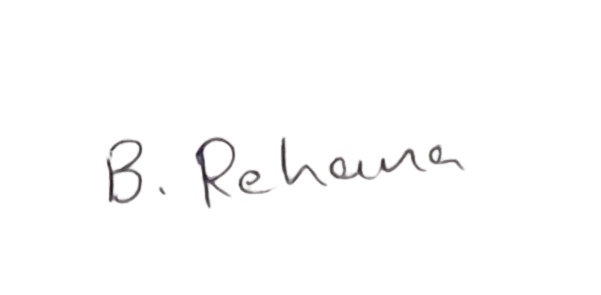 B. Rehana